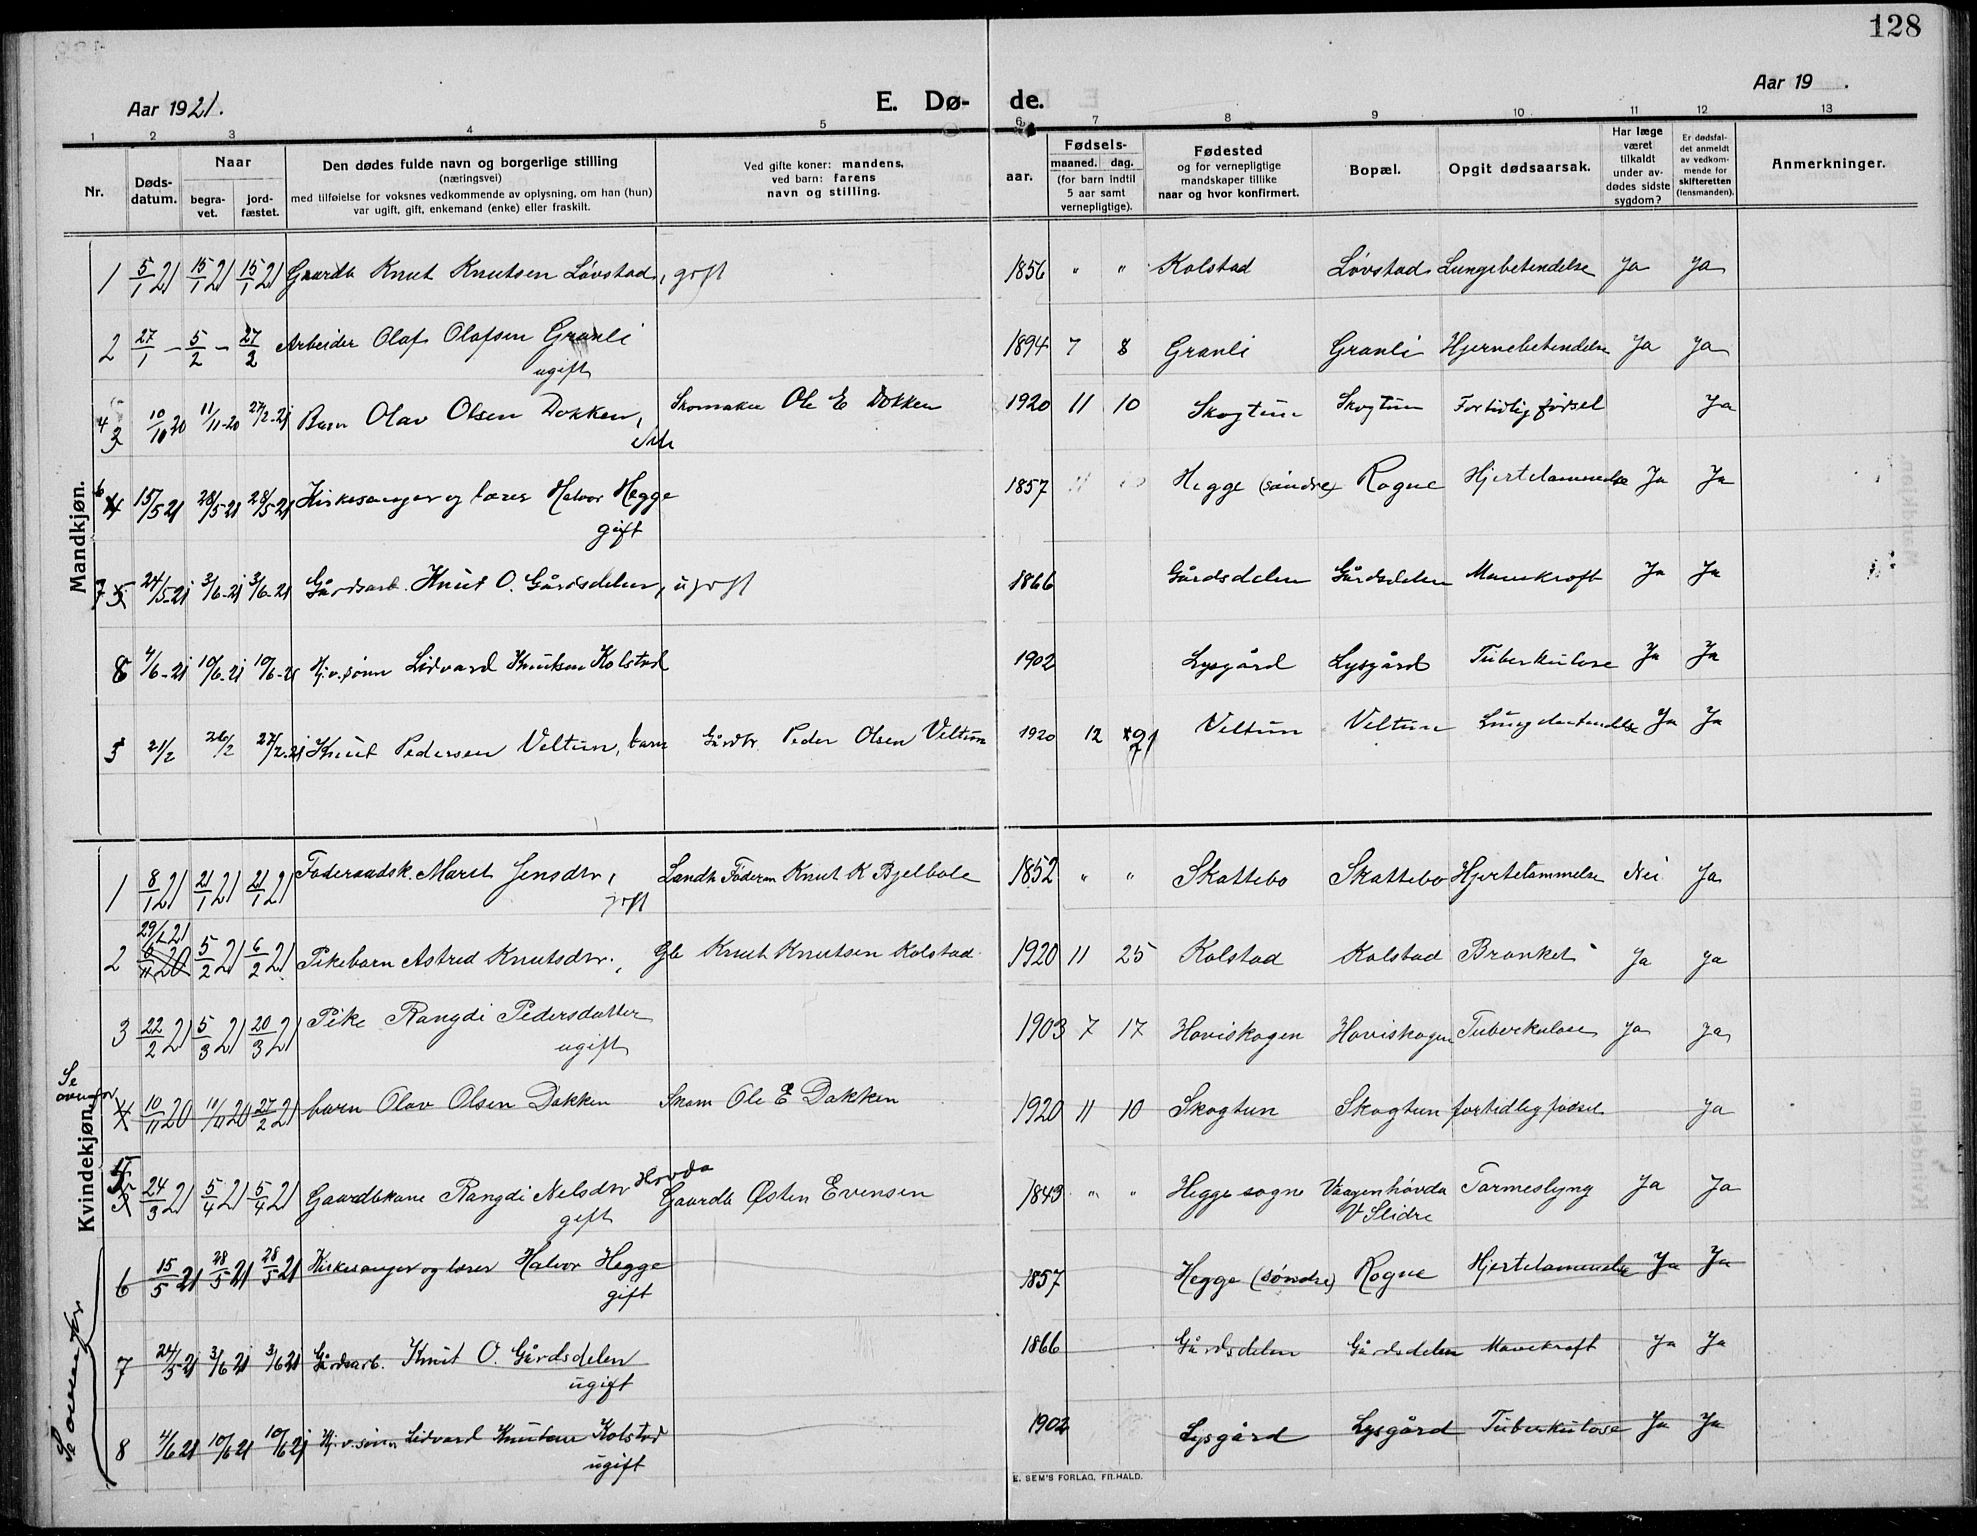 128
Aar 1921. E. Dø- de. Aar 19 .
1 2 3 4 5 6 7 8 9 10 11 12 13
Nr.
Døds-
datum.
Naar
begra-
vet.
jord-
fæstet.
Den dødes fulde navn og borgerlige stilling
(næringsvei)
med tilføielse for voksnes vedkommende av oplysning, om han (hun)
var ugift, gift, enkemand (enke) eller fraskilt.
Ved gifte koner: mandens,
ved barn: farens
navn og stilling.
aar.
Fødsels-
maaned. dag.
(for barn indtil
5 aar samt
vernepligtige).
Fødested
og for vernepligtige
mandskaper tillike
naar og hvor konfirmert.
Bopæl.
Opgit dødsaarsak.
Har læge
været
tilkaldt
under av-
dødes sidste
sygdom?
Er dødsfal-
det anmeldt
av vedkom-
mende for
skifteretten
(lensmanden).
Anmerkninger.
Mandkjøn.
1 5/1 21 15/1 21 15/1 21 Gaardb Knut Knutsen Løvstad, gift 1856 " " Kolstad Løvstad Lungebetendelse Ja Ja
2 27/1 - 5/2 - 27/2 Arbeider Olaf Olafsen Granli 1894 7 8 Granli Granli Hjernebetendelse Ja Ja
ugift
4 3 10/10 20 11/11-20 27/2-21 Barn Olav Olsen Dokken, Skomaker Ole E Dokken 1920 11 10 Skogtun Skogtun Fortidlig fødsel Ja
6 4 15/5 21 28/5-21 28/5-21 Kirkesanger og lærer Halvor Hegge 1857 Hegge (søndre) Rogne Hjertelammelse Ja Ja
gift
7 5 24/5-21 3/6-21 3/6-21 Gårdsarb. Knut O. Gårdsdelen, ugift 1866 Gårdsdelen Gårdsdelen Mavekræft Ja Ja
8 4/6-21 10/6-21 10/6-21 Kj.v.sønn Lidvard Knutsen Kolstad 1902 Lysgård Lysgård Tuberkulose Ja Ja
5 21/2 26/2 27/2-21 Knut Pedersen Veltun, barn Gårdbr. Peder Olsen Veltun 1920 12 21 Veltun Veltun Lungebetendelse Ja Ja
Kvindekjøn.
1 8/1 21 21/1 21 21/1 21 Føderaadsk. Marit Jensdtr, Landh Føderm Knut K Bjelbøle 1852 " " Skattebo Skattebo Hjertelammelse Nei Ja
gift
29/1 21
2 6/11 20 5/2 21 6/2 21 Pikebarn Astrid Knutsdtr., Gb Knut Knutsen Kolstad 1920 11 25 Kolstad Kolstad Bronket Ja Ja
3 22/2 21 5/3 21 20/3 21 Pike Rangdi Pedersdatter 1903 7 17 Haviskogen Haviskogen Tuberkulose Ja Ja
ugift
Se
ovenfor
4 10/11 20 11/11 20 27/2 21 barn Olav Olsen Dokken Skom Ole E Dokken 1920 11 10 Skogtun Skogtun fortidlig fødsel Ja
5 24/3 21 5/4 21 5/4 21 Gaardbkone Rangdi Nelsdtr Hovda Gaardb Østen Evensen 1843 " " Hegge sogne Vaagenhøvda Tarmeslyng Ja Ja
gift V Slidre
6 15/5 21 28/5 21 28/5 21 Kirkesanger og lærer Halvor Hegge 1857 Hegge (søndre) Rogne Hjertelammelse Ja Ja
gift
Se ovenfor
7 24/5-21 3/6 21 3/6 21 Gårdsarb. Knut O. Gårdsdelen 1866 Gårdsdelen Gårdsdelen Mavekræft Ja Ja
ugift
8 4/6 21 10/6 21 10/6 21 Kj.v.sønn Lidvard Knutsen Kolstad 1902 Lysgård Lysgård Tuberkulose Ja Ja
ugift
E. SEM'S FORLAG, FR.HALD.